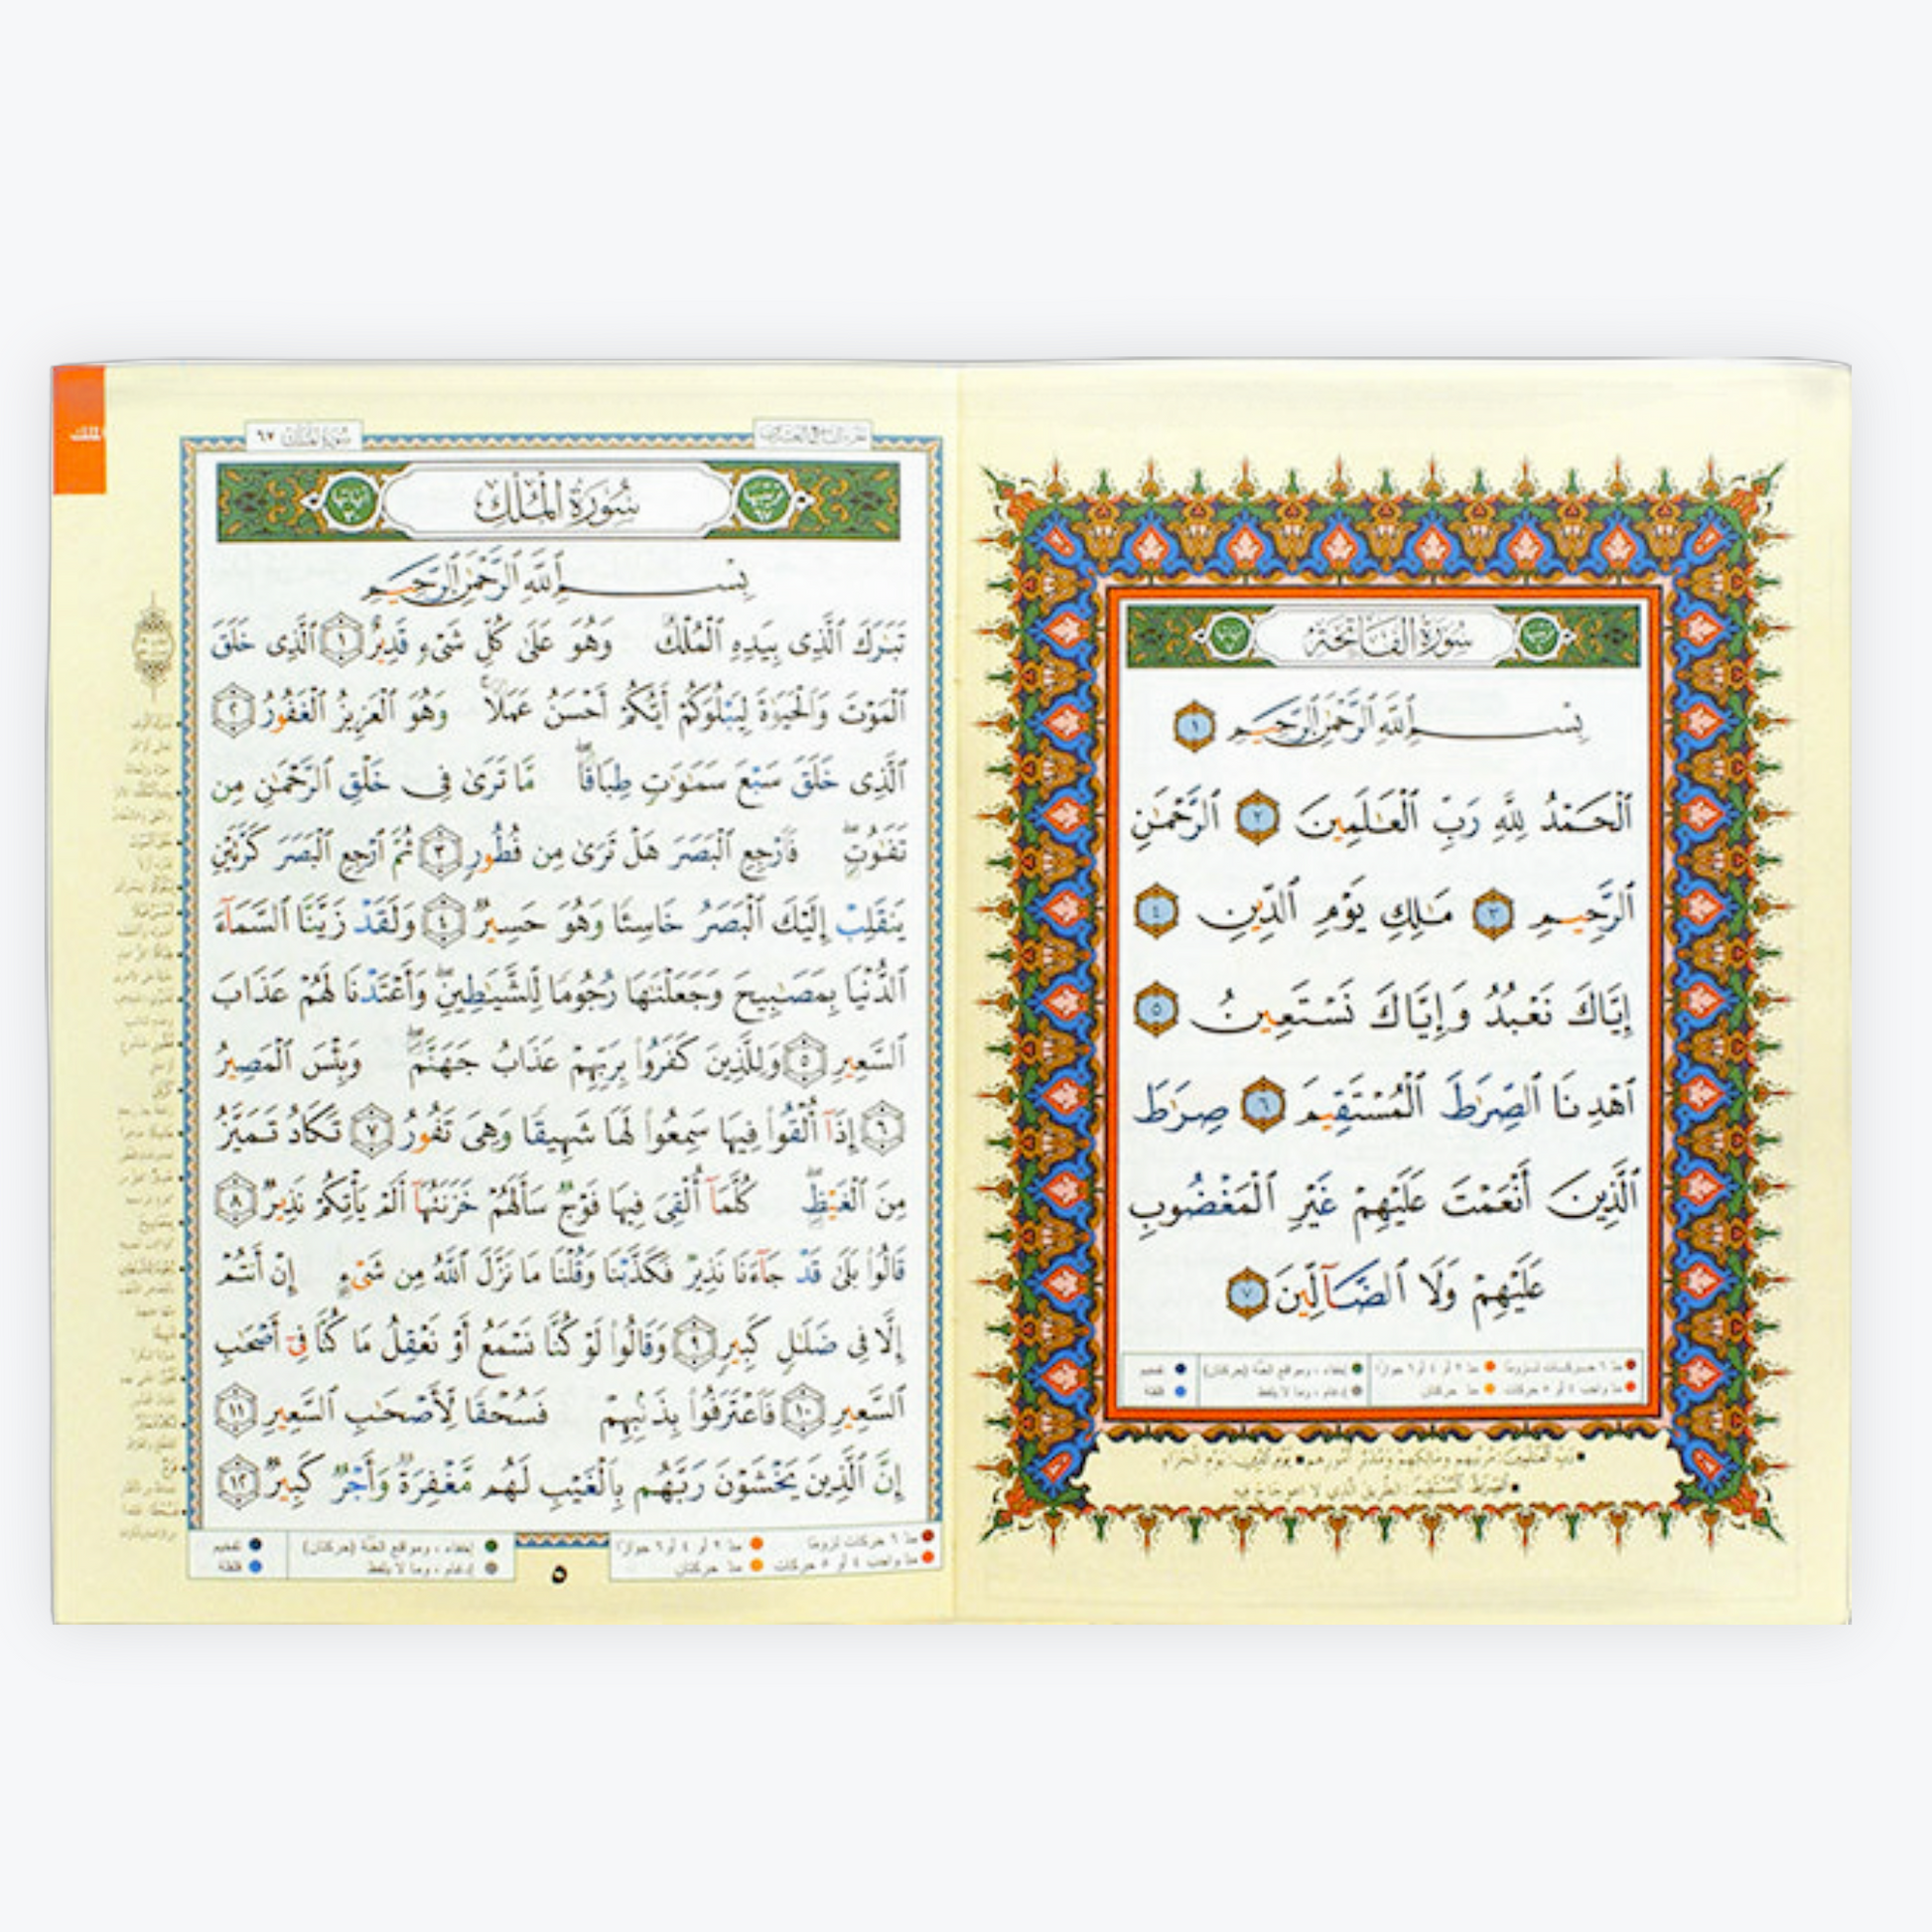 سُورَةُ الفَاتِحَةِ
بِسْمِ ٱللَّهِ ٱلرَّحْمَٰنِ ٱلرَّحِيمِ ١
ٱلْحَمْدُ لِلَّهِ رَبِّ ٱلْعَٰلَمِينَ ٢ ٱلرَّحْمَٰنِ
ٱلرَّحِيمِ ٣ مَٰلِكِ يَوْمِ ٱلدِّينِ ٤
إِيَّاكَ نَعْبُدُ وَإِيَّاكَ نَسْتَعِينُ ٥
ٱهْدِنَا ٱلصِّرَٰطَ ٱلْمُسْتَقِيمَ ٦ صِرَٰطَ
ٱلَّذِينَ أَنْعَمْتَ عَلَيْهِمْ غَيْرِ ٱلْمَغْضُوبِ
عَلَيْهِمْ وَلَا ٱلضَّآلِّينَ ٧
مدّ ٦ حركات لزومًا مدّ ٢ أو ٤ أو ٦ جوازًا إخفاء، ومواقع الغنّة (حركتان) تفخيم
مدّ واجب ٤ أو ٥ حركات مدّ حركتان إدغام، وما لا يلفظ قلقلة
رَبِّ الْعَالَمِينَ: مُرَبِّيهِمْ وَمَالِكِهِمْ وَمُدَبِّرِ أُمُورِهِمْ يَوْمِ الدِّينِ: يَوْمِ الْجَزَاءِ
الصِّرَاطَ الْمُسْتَقِيمَ: الطَّرِيقَ الَّذِي لَا اعْوِجَاجَ فِيهِ
الملك
سُورَةُ المُلْكِ ٦٧
سُورَةُ المُلْكِ
بِسْمِ ٱللَّهِ ٱلرَّحْمَٰنِ ٱلرَّحِيمِ
تَبَٰرَكَ ٱلَّذِى بِيَدِهِ ٱلْمُلْكُ وَهُوَ عَلَىٰ كُلِّ شَىْءٍ قَدِيرٌ ١ ٱلَّذِى خَلَقَ
ٱلْمَوْتَ وَٱلْحَيَوٰةَ لِيَبْلُوَكُمْ أَيُّكُمْ أَحْسَنُ عَمَلًا ۚ وَهُوَ ٱلْعَزِيزُ ٱلْغَفُورُ ٢
ٱلَّذِى خَلَقَ سَبْعَ سَمَٰوَٰتٍ طِبَاقًا ۖ مَّا تَرَىٰ فِى خَلْقِ ٱلرَّحْمَٰنِ مِن
تَفَٰوُتٍ ۖ فَٱرْجِعِ ٱلْبَصَرَ هَلْ تَرَىٰ مِن فُطُورٍ ٣ ثُمَّ ٱرْجِعِ ٱلْبَصَرَ كَرَّتَيْنِ
يَنقَلِبْ إِلَيْكَ ٱلْبَصَرُ خَاسِئًا وَهُوَ حَسِيرٌ ٤ وَلَقَدْ زَيَّنَّا ٱلسَّمَآءَ
ٱلدُّنْيَا بِمَصَٰبِيحَ وَجَعَلْنَٰهَا رُجُومًا لِّلشَّيَٰطِينِ ۖ وَأَعْتَدْنَا لَهُمْ عَذَابَ
ٱلسَّعِيرِ ٥ وَلِلَّذِينَ كَفَرُوا۟ بِرَبِّهِمْ عَذَابُ جَهَنَّمَ ۖ وَبِئْسَ ٱلْمَصِيرُ
٦ إِذَآ أُلْقُوا۟ فِيهَا سَمِعُوا۟ لَهَا شَهِيقًا وَهِىَ تَفُورُ ٧ تَكَادُ تَمَيَّزُ
مِنَ ٱلْغَيْظِ ۖ كُلَّمَآ أُلْقِىَ فِيهَا فَوْجٌ سَأَلَهُمْ خَزَنَتُهَآ أَلَمْ يَأْتِكُمْ نَذِيرٌ ٨
قَالُوا۟ بَلَىٰ قَدْ جَآءَنَا نَذِيرٌ فَكَذَّبْنَا وَقُلْنَا مَا نَزَّلَ ٱللَّهُ مِن شَىْءٍ إِنْ أَنتُمْ
إِلَّا فِى ضَلَٰلٍ كَبِيرٍ ٩ وَقَالُوا۟ لَوْ كُنَّا نَسْمَعُ أَوْ نَعْقِلُ مَا كُنَّا فِىٓ أَصْحَٰبِ
ٱلسَّعِيرِ ١٠ فَٱعْتَرَفُوا۟ بِذَنۢبِهِمْ فَسُحْقًا لِّأَصْحَٰبِ ٱلسَّعِيرِ ١١
إِنَّ ٱلَّذِينَ يَخْشَوْنَ رَبَّهُم بِٱلْغَيْبِ لَهُم مَّغْفِرَةٌ وَأَجْرٌ كَبِيرٌ ١٢
مدّ ٦ حركات لزومًا مدّ ٢ أو ٤ أو ٦ جوازًا إخفاء، ومواقع الغنّة (حركتان) تفخيم
مدّ واجب ٤ أو ٥ حركات مدّ حركتان إدغام، وما لا يلفظ قلقلة
٥